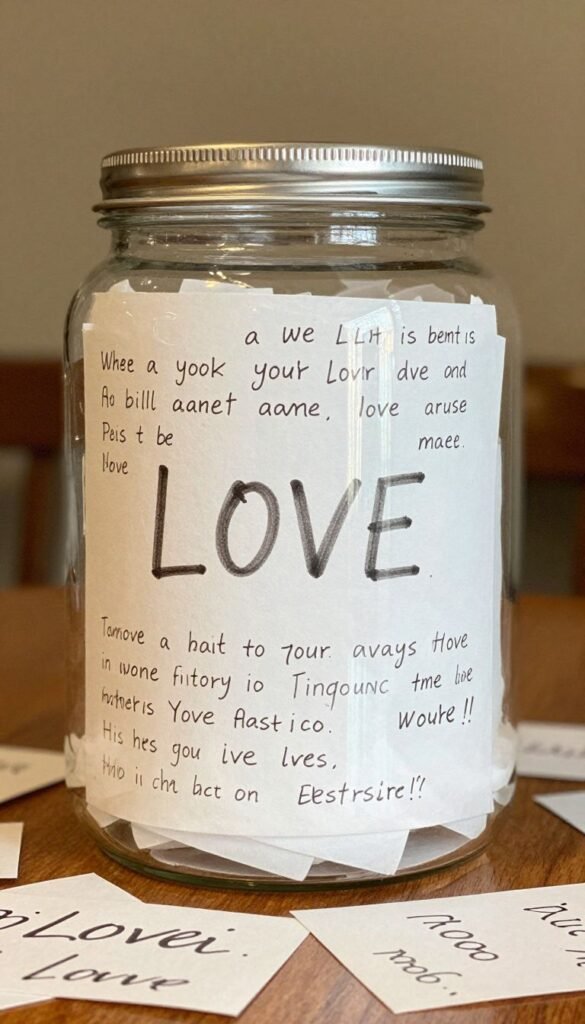 a we LLH is bemt is
Whee a yook your Lovr dve and
Ao bill aanet aame, love aruse
Peis t be maee.
love
LOVE
Tamove a hait to your avays Hove
in wone fiitory io Tingounc tme loe
Yove Aastico. Woure!!
His hes gou ive lves,
ii cht bct on Eestrsire!?
Lovei.
Lovve